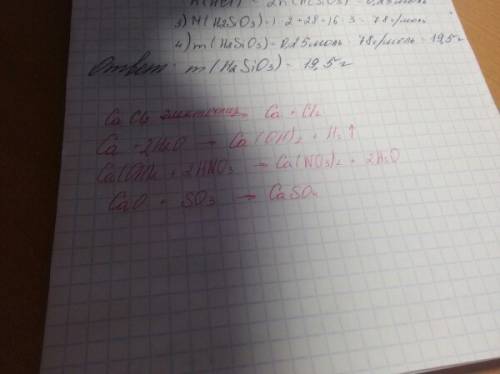 n(HCl) = 2n(H2SiO3) = 0,25моль
3) M(H2SO3) = 1·2+28+16·3 = 78 г/моль
4) m(H2SiO3) = 0,25моль · 78 г/моль = 19,5 г
Ответ: m(H2SiO3) = 19,5 г
CaCl2 электролиз Ca + Cl2
Ca + 2H2O → Ca(OH)2 + H2↑
Ca(OH)2 + 2HNO3 → Ca(NO3)2 + 2H2O
CaO + SO3 → CaSO4